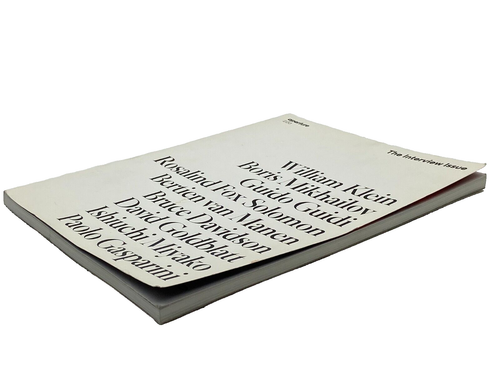 aperture
The Interview Issue
William Klein
Boris Mikhailov
Guido Guidi
Rosalind Fox Solomon
Bertien van Manen
Bruce Davidson
David Goldblatt
Ishiuchi Miyako
Paolo Gasparini